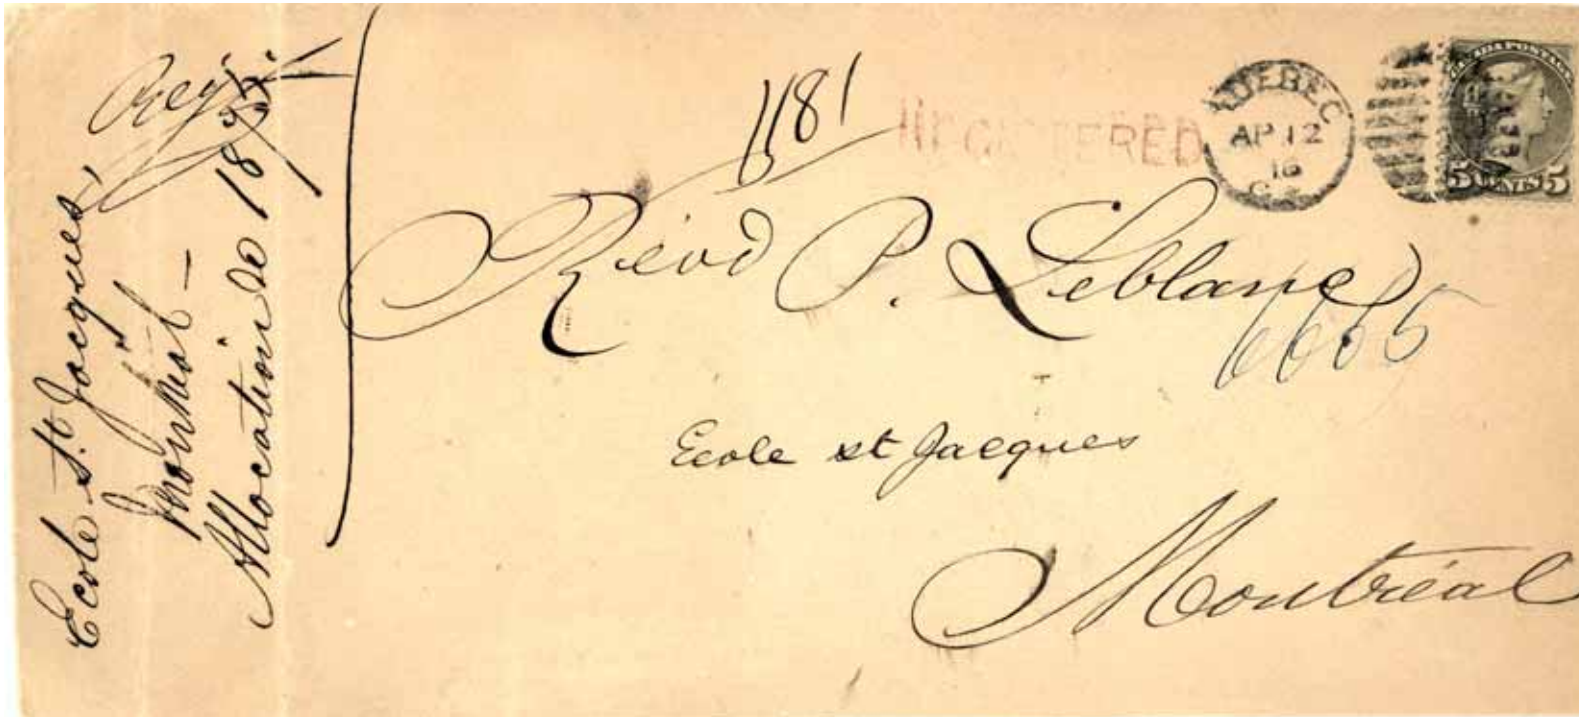 Ecole St Jacques,
Montréal —
Allocation de 18
1181
REGISTERED
QUEBEC
AP 12
CANADA POSTAGE
5 CENTS 5
Révd P. Leblanc
6665
Ecole st Jacques
Montréal